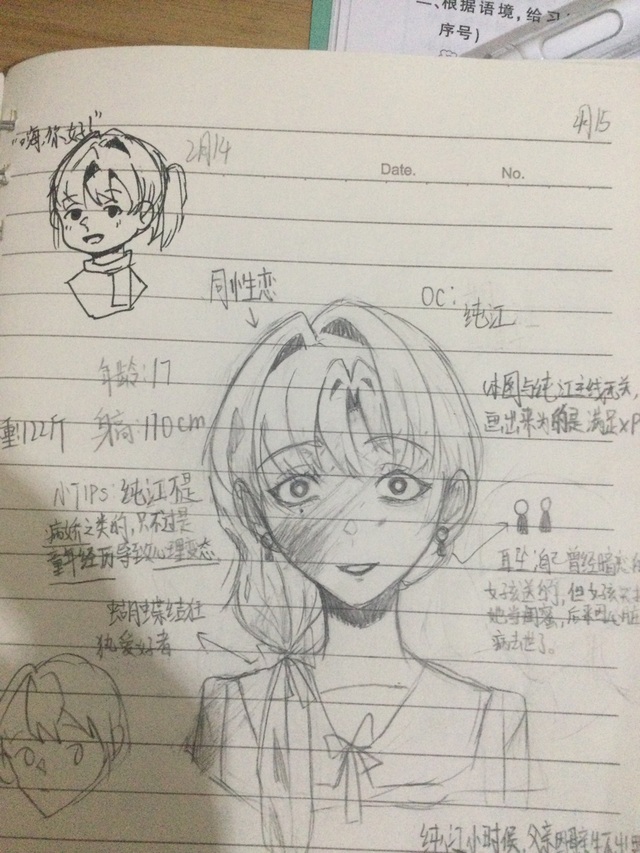 一、根据语境，给
序号)
4月15
"嗨,你好!"
2月14
Date.
No.
同性恋
OC:
纯江
年龄:17
体重122斤
身高:170cm
本图与纯江主线无关,
画出来为的是满足XP
小TIPS:纯江不是
病娇之类的,只不过是
童年经历导致心理变态
耳坠:自己曾经暗恋的
女孩送的,但女孩只把
她当闺蜜,后来因心脏
病去世了。
蝴蝶结狂
热爱好者
纯江小时候,父亲因醉